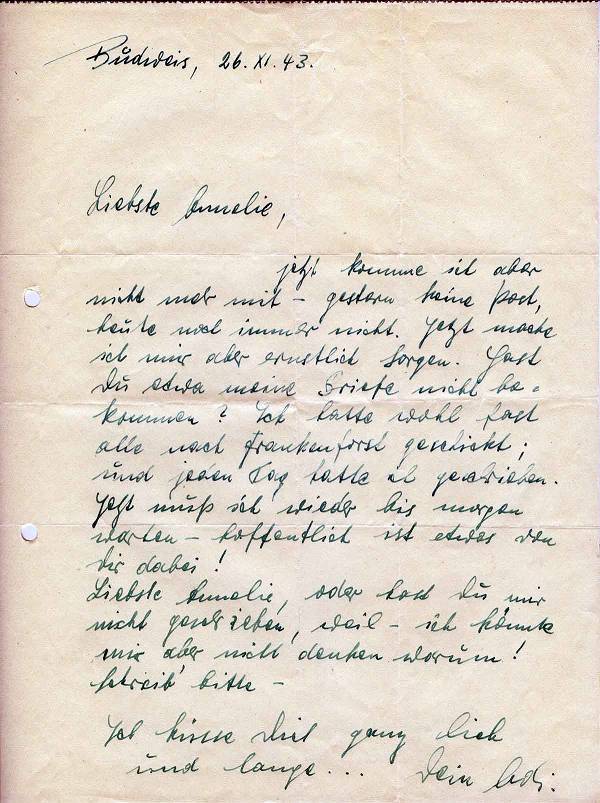 Budweis, 26. XI. 43.
Liebste Annelie,
jetzt komme ich aber
nicht mehr mit – gestern keine Post,
heute noch immer nicht. Jetzt mache
ich mir aber ernstlich Sorgen. Hast
Du etwa meine Briefe nicht be-
kommen? Ich hatte wohl fast
alle nach Frankenforst geschickt;
und jeden Tag hatte ich geschrieben.
Jetzt muß ich wieder bis morgen
warten – hoffentlich ist etwas von
Dir dabei!
Liebste Annelie, oder hast Du mir
nicht geschrieben, weil – ich könnte
mir aber nicht denken warum!
Schreib' bitte –
Ich küsse Dich ganz lieb
und lange... Dein Adi.